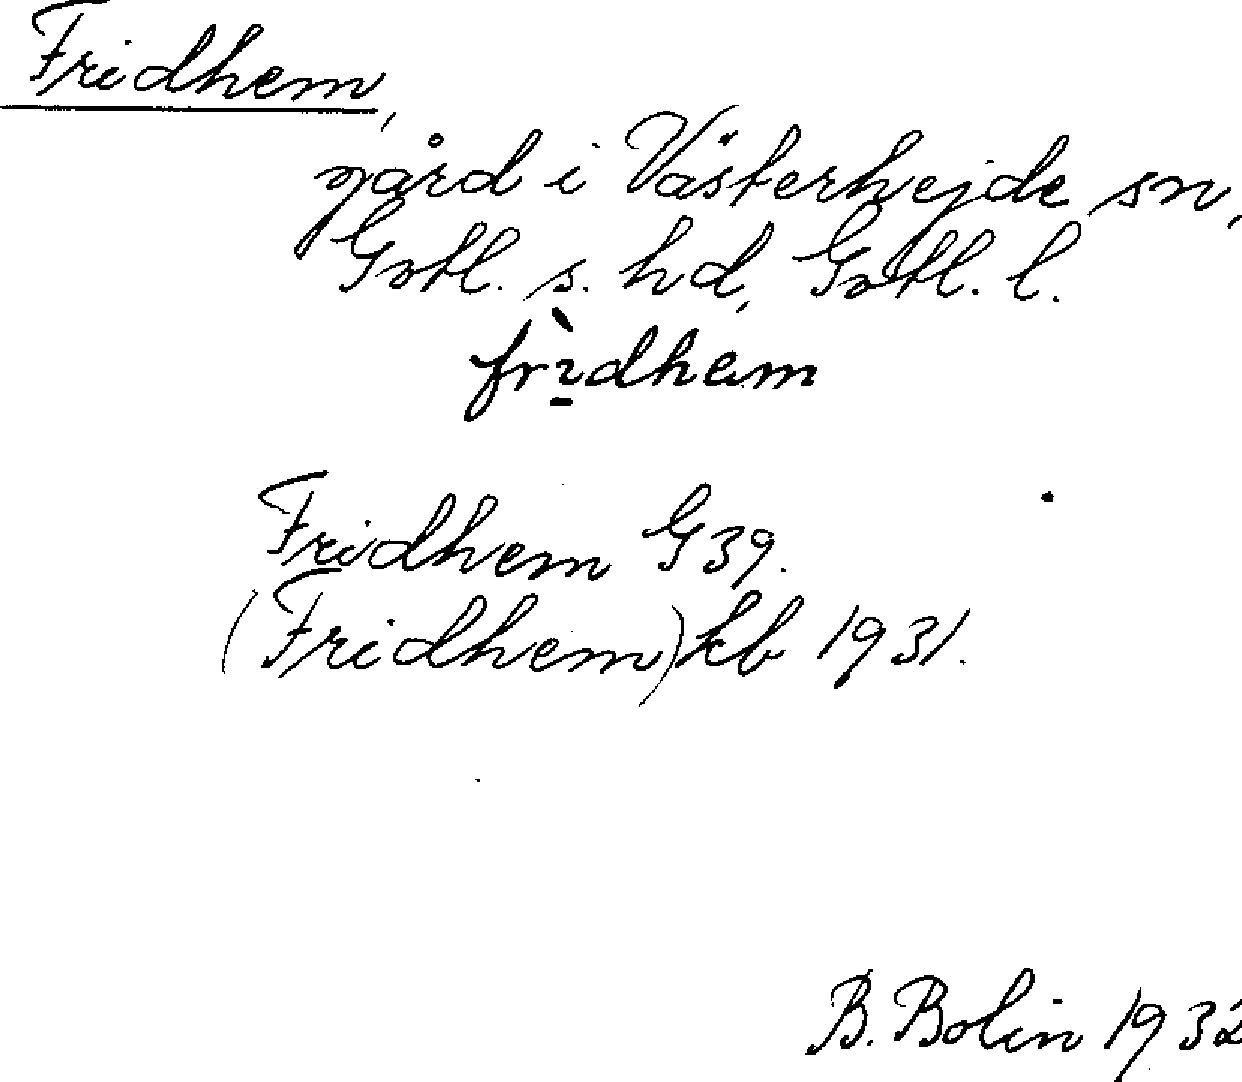 Fridhem,
gård i Västerhejde sn,
Gotl. s. hd, Gotl. l.
frı̱̀dhem
Fridhem G 39.
(Fridhem) kb 1931.
B. Bolin 1932